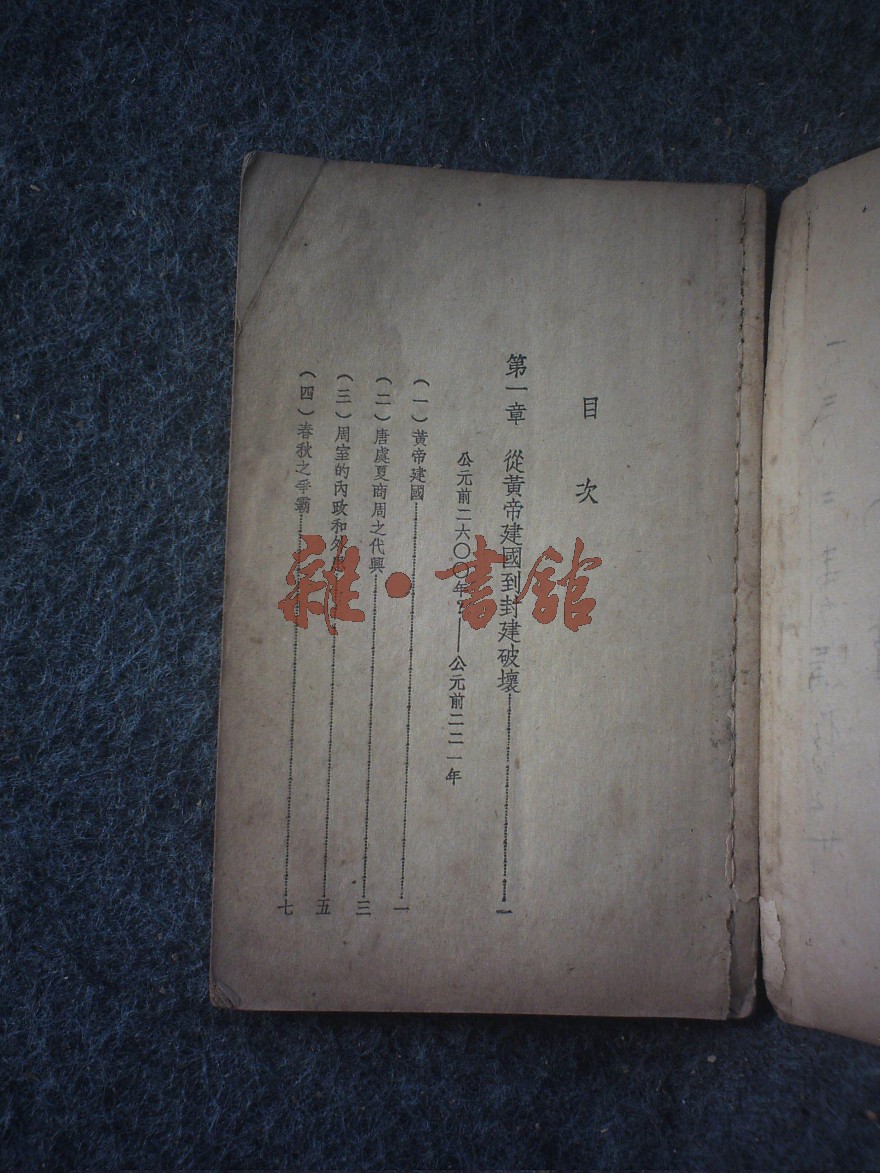 目次
第一章　從黃帝建國到封建破壞……一
公元前二六〇〇年?——公元前二二一年
(一)黃帝建國……一
(二)唐虞夏商周之代興……三
(三)周室的內政和外患……五
(四)春秋之爭霸……七
雜·書館